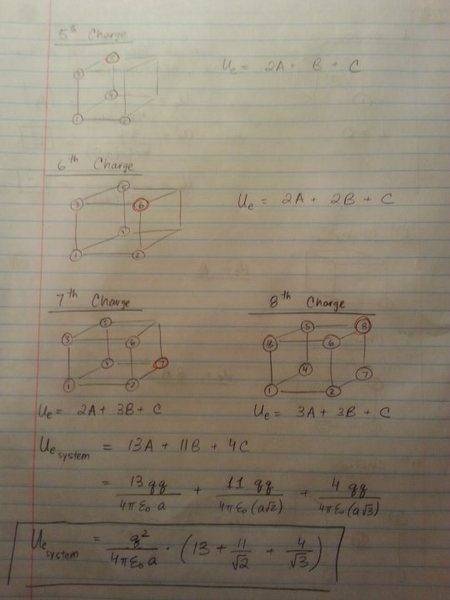 5th Charge
Ue = 2A + B + C
6th Charge
Ue = 2A + 2B + C
7th Charge
8th Charge
Ue = 2A + 3B + C
Ue = 3A + 3B + C
Ue system = 13A + 11B + 4C
= 13 qq / 4πε₀ a + 11 qq / 4πε₀(a√2) + 4 qq / 4πε₀(a√3)
Ue system = q² / 4πε₀a · (13 + 11/√2 + 4/√3)